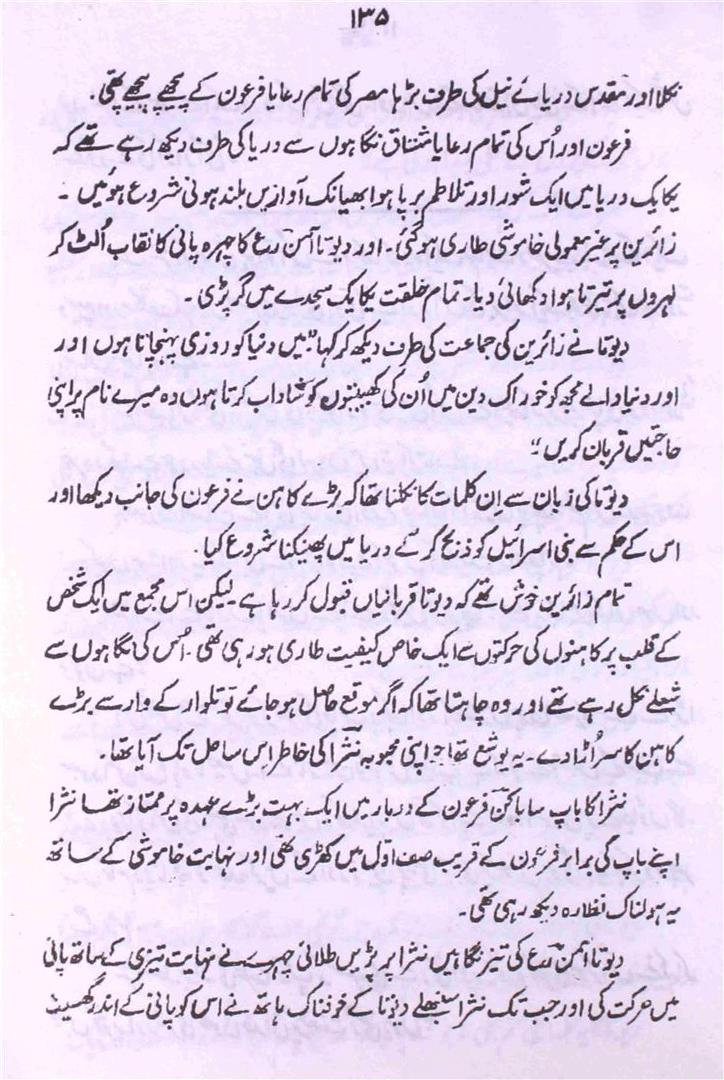 ۱۳۵
نکلا اور مقدس دریائے نیل کی طرف بڑہا مصر کی تمام رعایا فرعون کے پیچھے پیچھے تھی۔
فرعون اور اُس کی تمام رعایا مشتاق نگاہوں سے دریا کی طرف دیکھ رہے تھے کہ
یکایک دریا میں ایک شور اور تلاطم برپا ہوا بھیانک آوازیں بلند ہونی شروع ہوئیں۔
زائرین پر غیر معمولی خاموشی طاری ہو گئی۔ اور دیوتا آمن رَع کا چہرہ پانی کا نقاب اُلٹ کر
لہروں پر تیرتا ہوا دکھائی دیا۔ تمام خلقت یکایک سجدے میں گر پڑی۔
دیوتا نے زائرین کی جماعت کی طرف دیکھ کر کہا "میں دنیا کو روزی پہنچاتا ہوں اور
اور دنیا والے مجھ کو خوراک دین میں اُن کی کھیتیوں کو شاداب کرتا ہوں وہ میرے نام پر اپنی
حاجتیں قربان کریں"
دیوتا کی زبان سے اِن کلمات کا نکلنا تھا کہ بڑے کاہن نے فرعون کی جانب دیکھا اور
اس کے حکم سے بنی اسرائیل کو ذبح کر کے دریا میں پھینکنا شروع کیا۔
تمام زائرین خوش تھے کہ دیوتا قربانیاں قبول کر رہا ہے۔ لیکن اس مجمع میں ایک شخص
کے قلب پر کاہنوں کی حرکتوں سے ایک خاص کیفیت طاری ہو رہی تھی۔ اُس کی نگاہوں سے
شعلے نکل رہے تھے اور وہ چاہتا تھا کہ اگر موقع حاصل ہو جائے تو تلوار کے وار سے بڑے
کاہن کا سر اُڑا دے۔ یہ یوشع تھا جو اپنی محبوبہ نثرا کی خاطر اس ساحل تک آیا تھا۔
نثرا کا باپ سابا کن فرعون کے دربار میں ایک بہت بڑے عہدہ پر ممتاز تھا نثرا
اپنے باپ کی برابر فرعون کے قریب صف اول میں کھڑی تھی اور نہایت خاموشی کے ساتھ
یہ ہولناک نظارہ دیکھ رہی تھی۔
دیوتا آمن رَع کی تیز نگاہیں نثرا پر پڑیں طلائی چہرے نے نہایت تیزی کے ساتھ پانی
میں حرکت کی اور جب تک نثرا سنبھلے دیوتا کے خوفناک ہاتھ نے اس کو پانی کے اندر گھسیٹ